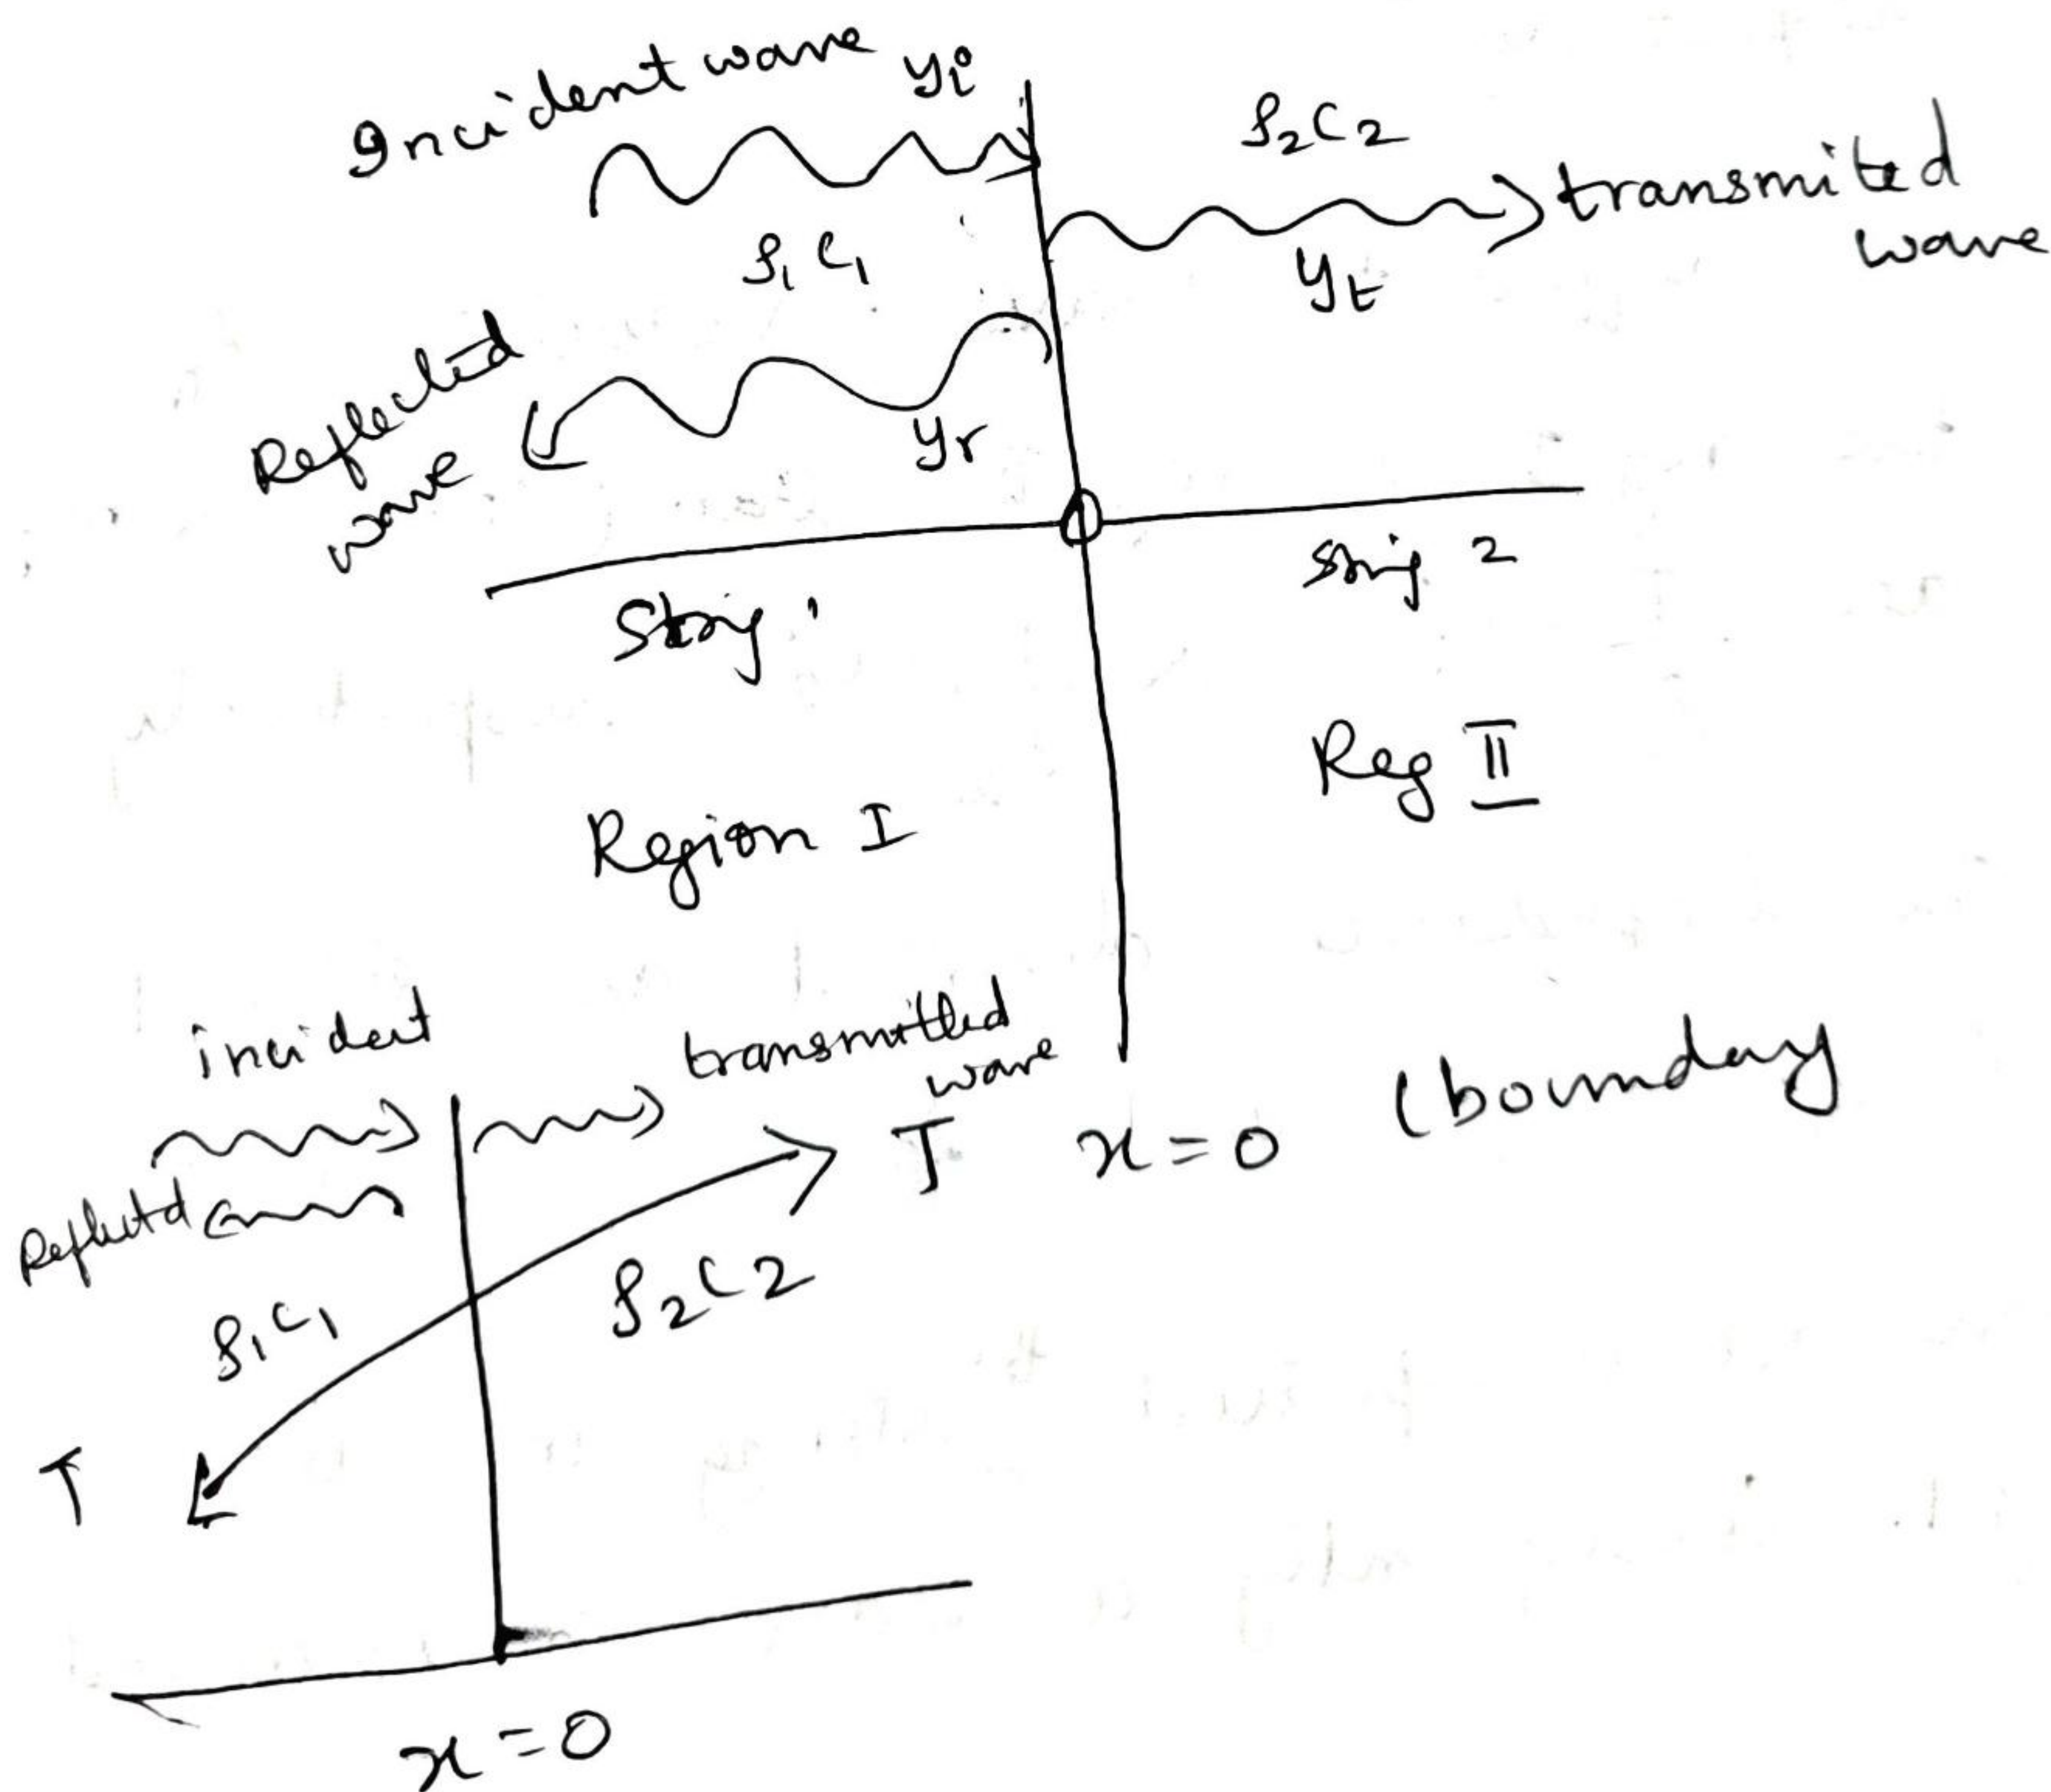 Incident wave yi
ρ2C2
transmited
wave
ρ1C1
yt
Reflected
wave
yr
String 1
String 2
Reg II
Region I
incident
transmitted
wave
x = 0 (boundary
T
Reflectd
ρ1C1
ρ2C2
T
x = 0